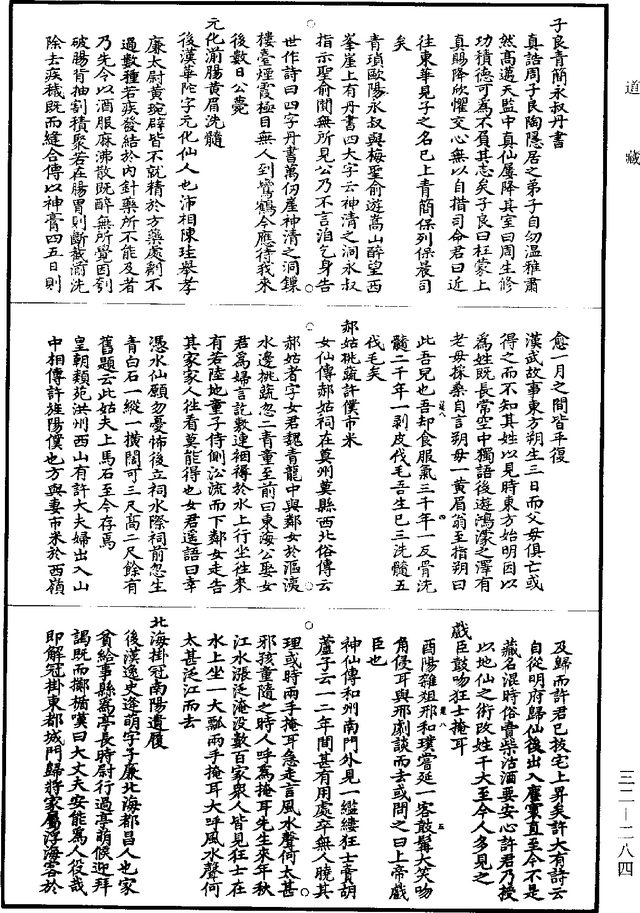 道藏
子良青簡永叔丹書
真誥周子良陶隱居之弟子自幼溫雅肅
然高邁天監中真仙屢降其室曰周生修
功積德可為不負其志矣子良曰枉蒙上
真賜降欣懼交心無以自措司命君曰近
往東華見子之名已上青簡保列保晨司
矣
青瑣歐陽永叔與梅聖俞遊嵩山醉望西
峯崖上有丹書四大字云神清之洞永叔
指示聖俞閱無所見公乃不言洎乞身告
世作詩曰四字丹書萬仞崖神清之洞鏁
樓臺煙霞極目無人到鸞鶴今應待我來
後數日公薨
元化湔腸黃眉洗髓
後漢華陀字元化仙人也沛相陳珪舉孝
廉太尉黃琬辟皆不就精於方藥處劑不
過數種若疾發結於內針藥所不能及者
乃先令以酒服麻沸散既醉無所覺因刳
破腸背抽割積聚若在腸胃則斷截湔洗
除去疾穢既而縫合傅以神膏四五日則
愈一月之間皆平復
漢武故事東方朔生三日而父母俱亡或
得之而不知其姓以見時東方始明因以
為姓既長常空中獨語後遊鴻濛之澤有
老母採桑自言朔母一黃眉翁至指朔曰
此吾兒也吾却食服氣三千年一反骨洗
髓二千年一剥皮伐毛吾生已三洗髓五
伐毛矣
郝姑挑蔬許僕市米
女仙傳郝姑祠在莫州莫縣西北俗傳云
郝姑者字女君魏青龍中與鄰女於漚洟
水邊挑蔬忽二青童至前曰東海公娶女
君為婦言訖敷連裀褥於水上行坐往來
有若陸地童子侍側沿流而下鄰女走告
其家家人往看莫能得也女君遥語曰幸
憑水仙願勿憂怖後立祠水際祠前忽生
青白石一縱一橫闊可三尺高二尺餘有
舊題云此姑夫上馬石至今存焉
皇朝類苑洪州西山有許大夫婦出入山
中相傳許旌陽僕也方與妻市米於西嶺
及歸而許君已拔宅上昇矣許大有詩云
自從明府歸仙後出入塵寰直至今不是
藏名混時俗賣柴沽酒要安心許君乃授
以地仙之術改姓干大至今人多見之
戲臣鼓吻狂士掩耳
酉陽雜俎邢和璞嘗延一客鼓髯大笑吻
角侵耳與邢劇談而去或問之曰上帝戲
臣也
神仙傳和州南門外見一緼縷狂士賣胡
蘆子云一二年間甚有用處卒無人曉其
理或時兩手掩耳急走言風水聲何太甚
邪孩童隨之時人呼為掩耳先生來年秋
江水漲泛淹没數百家衆人皆見狂士在
水上坐一大瓢兩手掩耳大呼風水聲何
太甚泛江而去
北海掛冠南陽遺履
後漢逸史逄萌字子廉北海都昌人也家
貧給事縣為亭長時尉行過亭萌候迎拜
謁既而擲楯嘆曰大丈夫安能為人役哉
即解冠掛東都城門歸將家屬浮海客於
三二—二八四